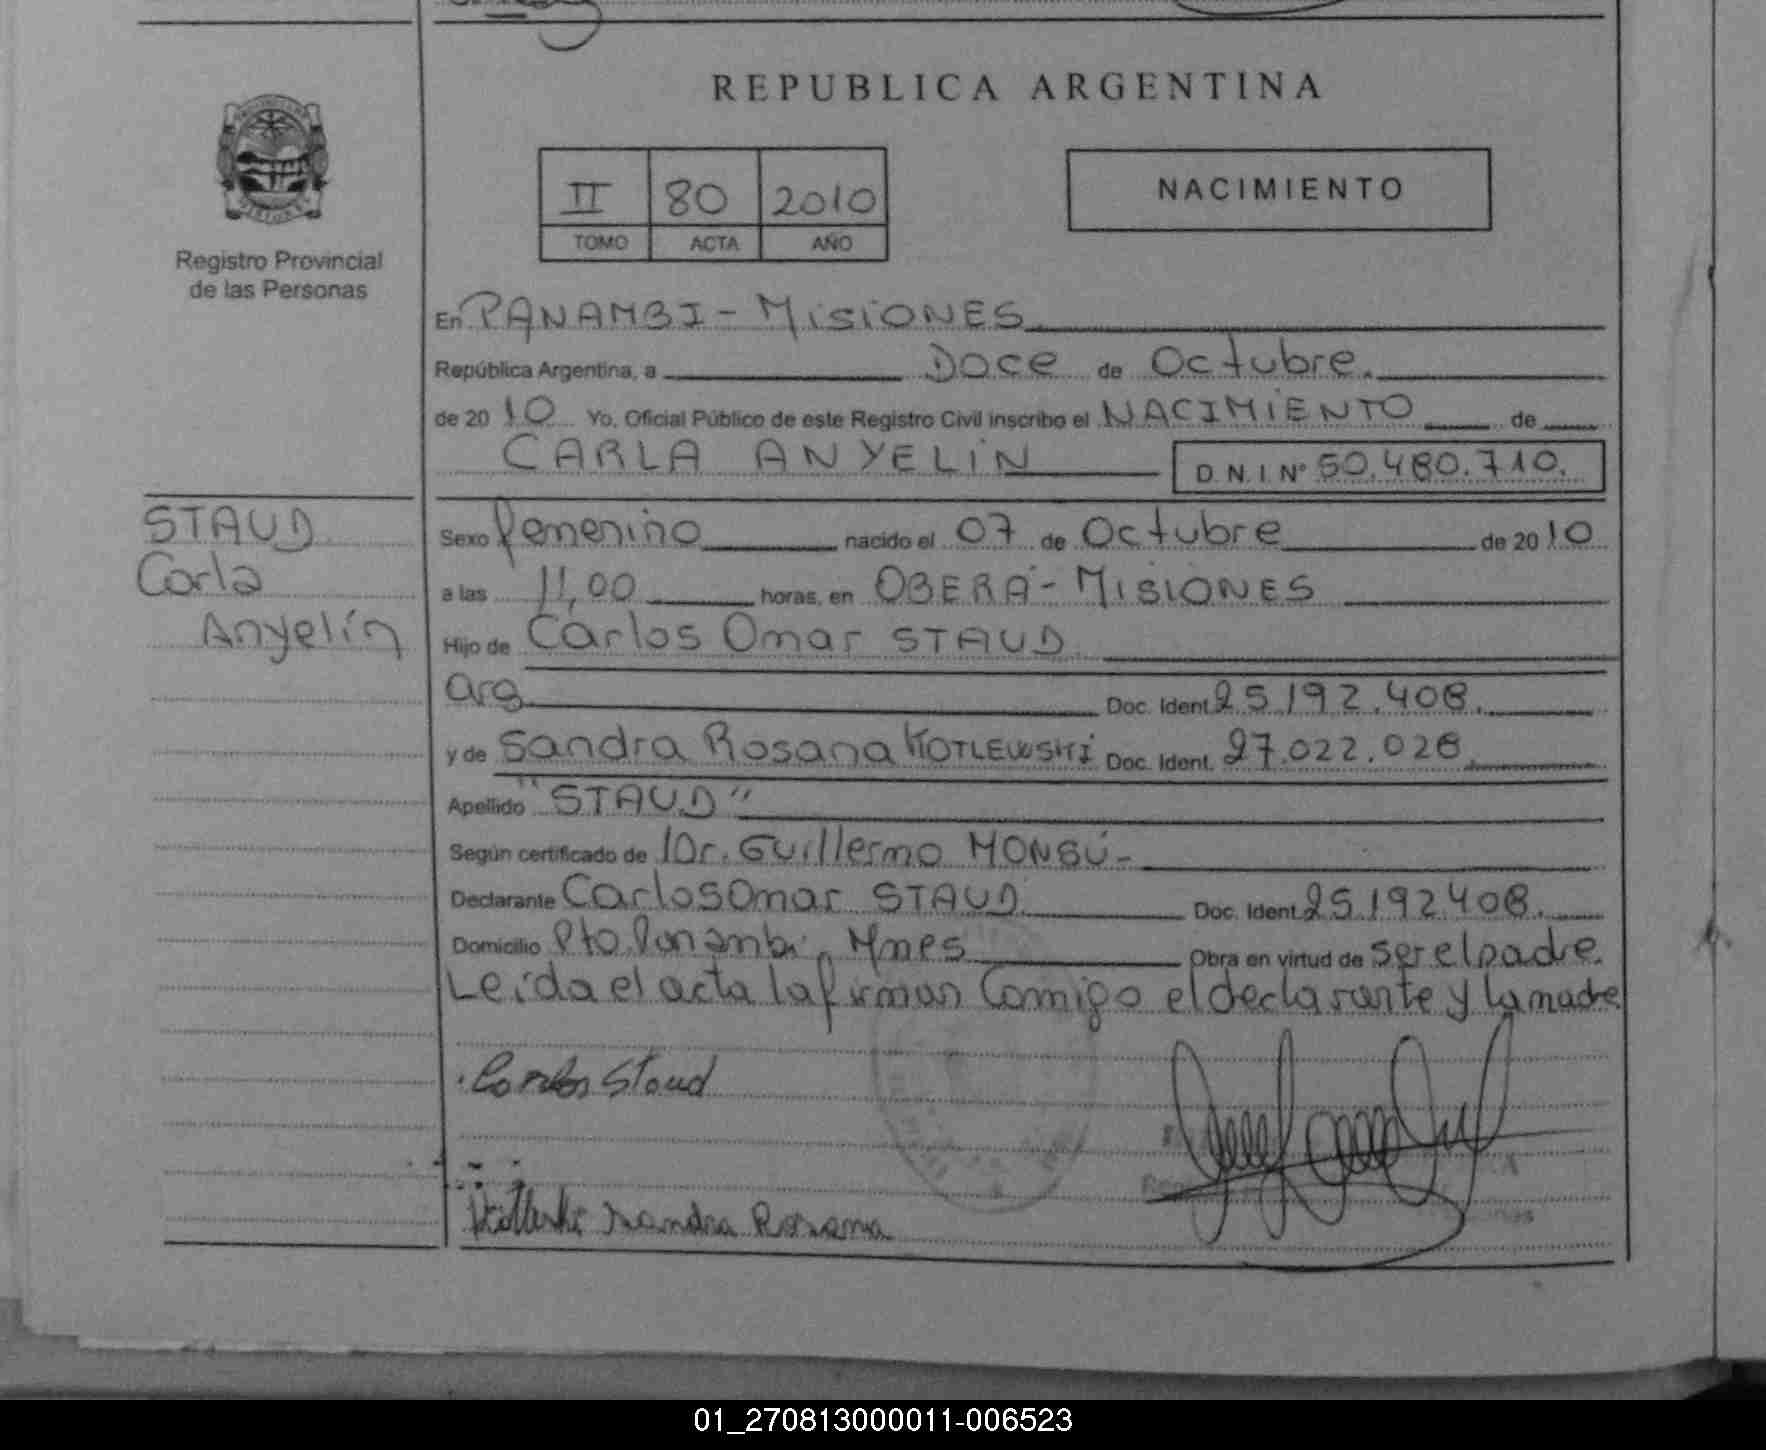 REPUBLICA ARGENTINA
II 80 2010
TOMO ACTA AÑO
NACIMIENTO
Registro Provincial
de las Personas
En PANAMBI - MISIONES
República Argentina, a DOCE de Octubre.
de 2010 Yo, Oficial Público de este Registro Civil inscribo el NACIMIENTO de
CARLA ANYELIN D.N.I. Nº 50.480.710.
STAUD
Carla
Anyelín
Sexo femenino nacido el 07 de Octubre de 2010
a las 11,00 horas, en OBERÁ - MISIONES
Hijo de Carlos Omar STAUD
arg Doc. Ident. 25.192.408.
y de Sandra Rosana KOTLEWSKI Doc. Ident. 27.022.028.
Apellido "STAUD"
Según certificado de Dr. Guillermo MONSÚ-
Declarante Carlos Omar STAUD Doc. Ident. 25.192.408.
Domicilio Pto. Panambi, Mnes Obra en virtud de ser el padre.
Leída el acta la firman Conmigo el declarante y la madre
Carlos Staud
Sandra Rosana
01_270813000011-006523